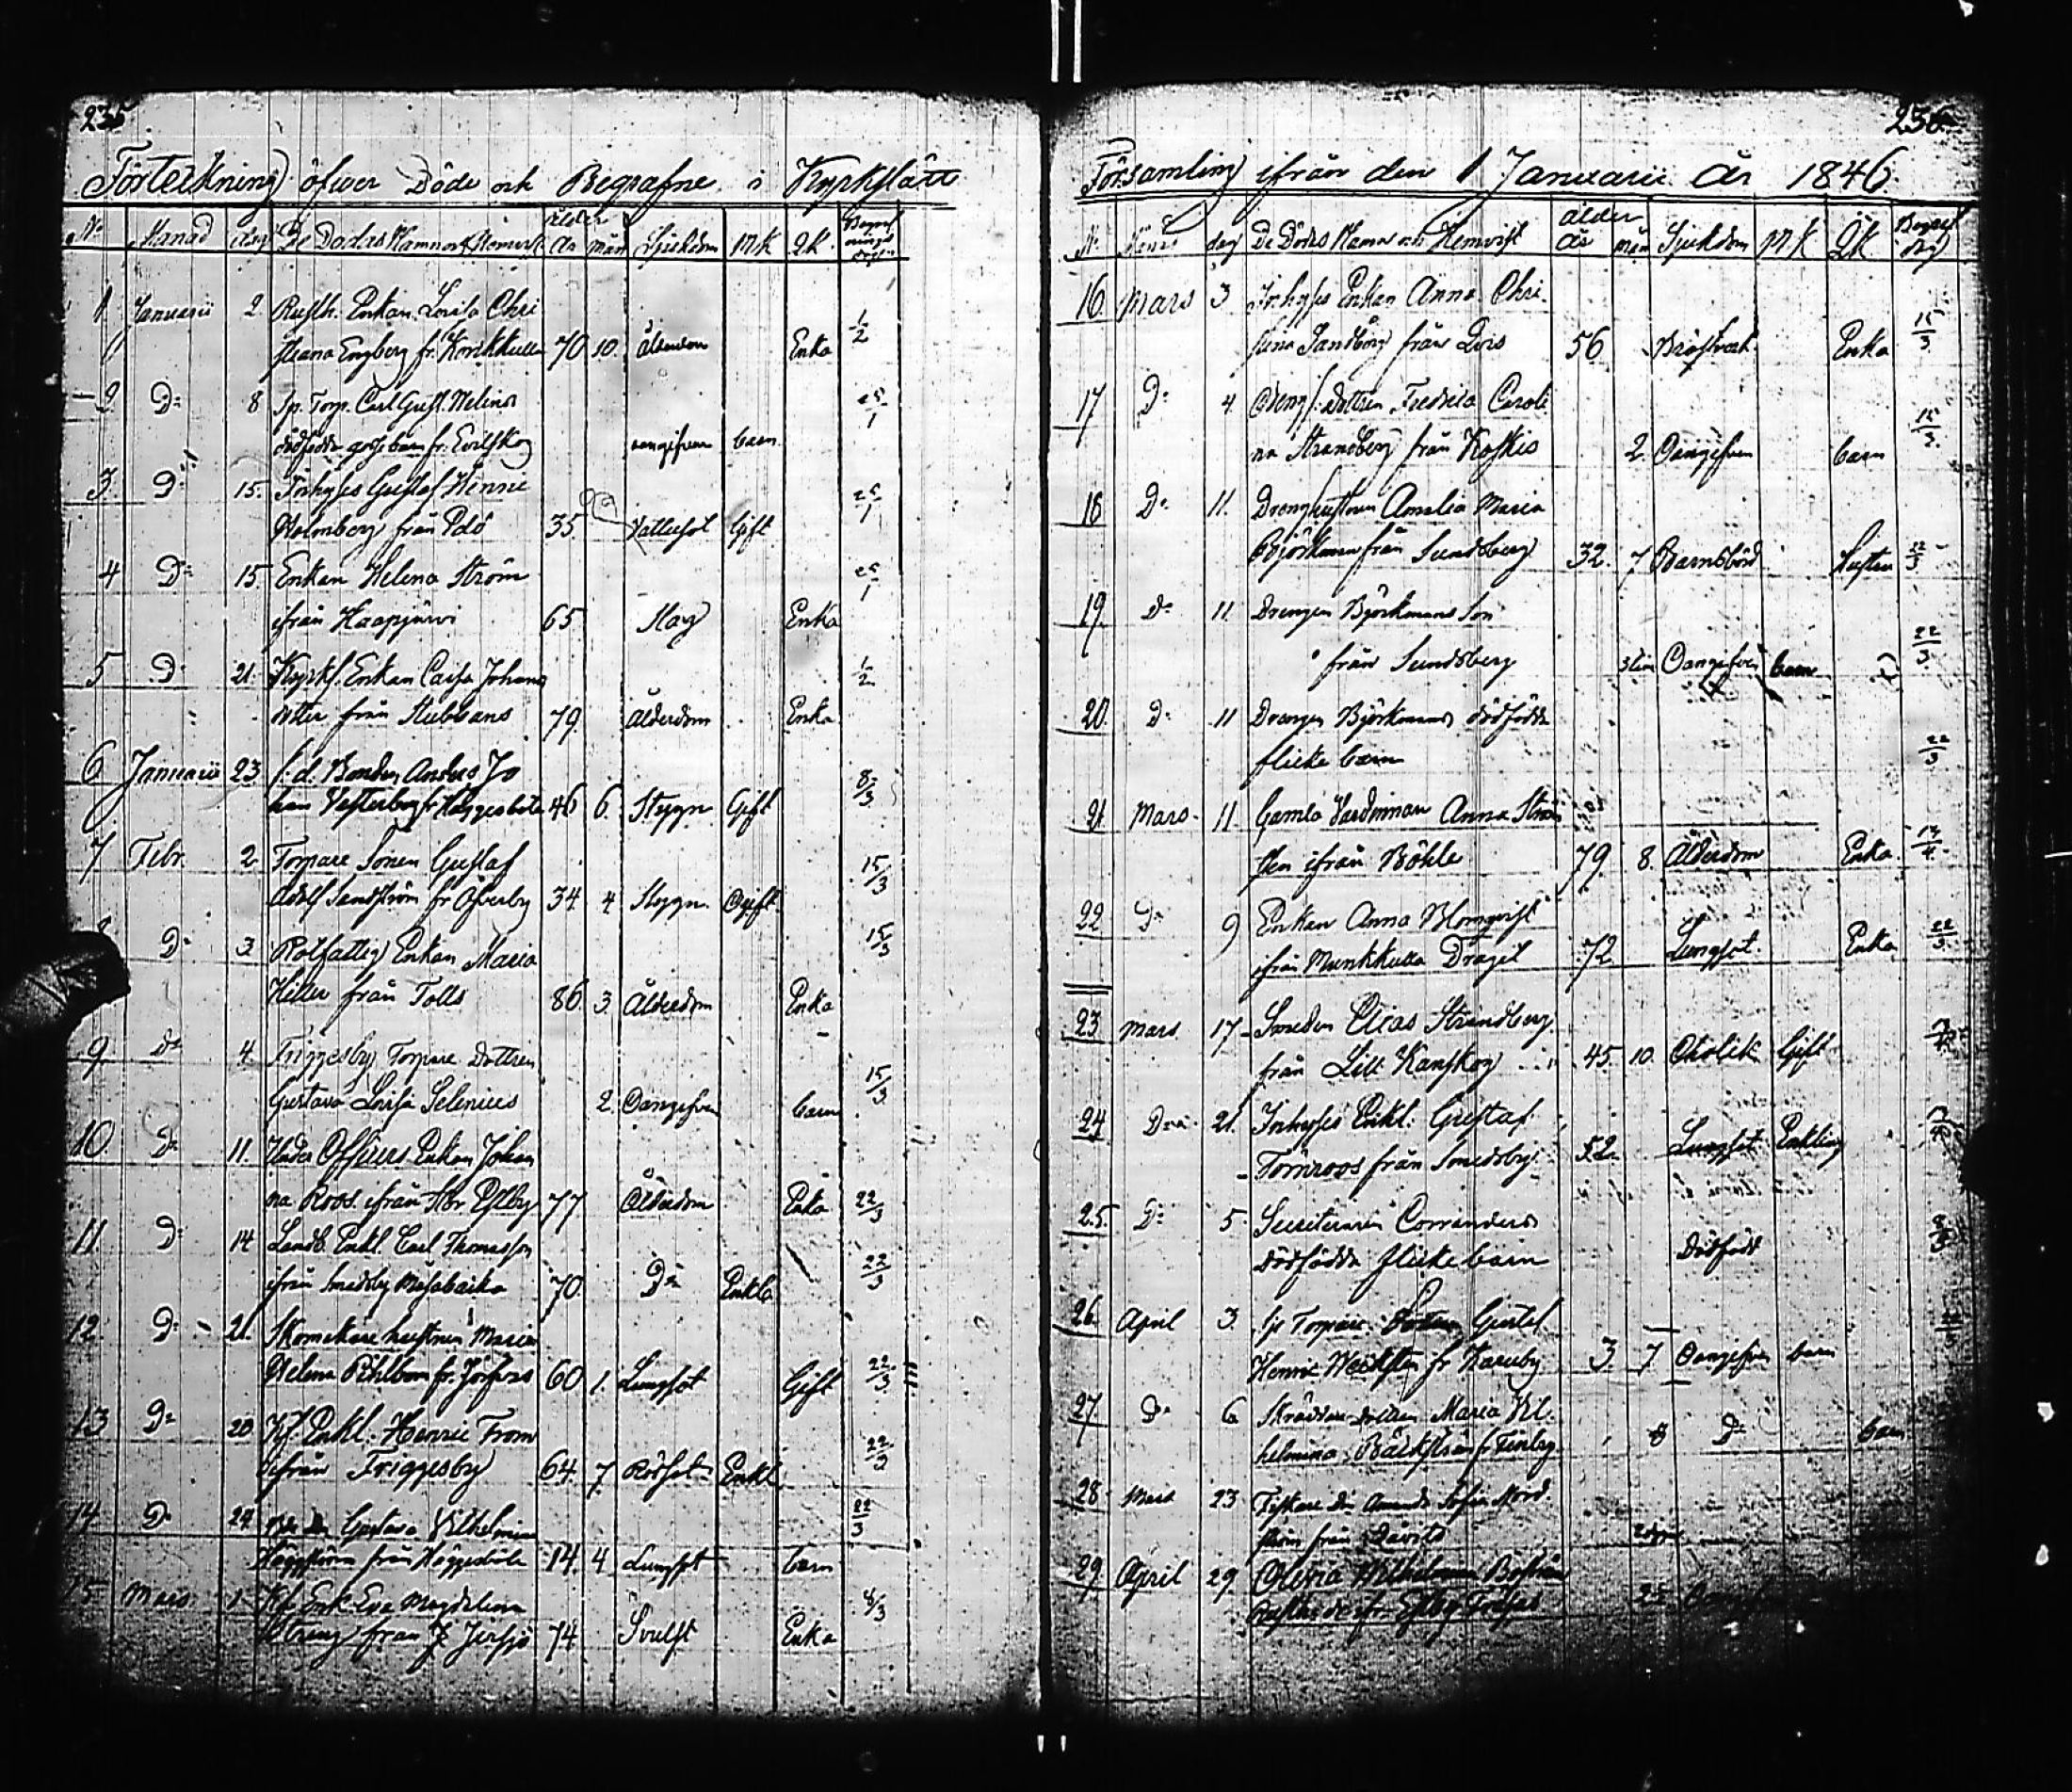 235
Förteckning öfwer Döde och Begrafne i Kyrkslätt
No Månad dag De Dödas Namn och Hemvist ålder år mån Sjukdom MK QK Begrafnings dag
1 Januarii 2 Rusth. Enkan Lovisa Chri
stiana Engberg fr. Korkkulla 70 10. Ålderdom Enka 1/2
2 Do 8 Sp. Torp. Carl Gust. Melins
dödfödde gosse barn fr. Evitskog oangifven barn 25/1
3. Do 15. Inhyses Gustaf Henric
Holmberg från Pdö 35. Vattusot Gift 25/1
4 Do 15. Enkan Helena Ström
ifrån Haapjärvi 65 Slag Enka 25/1
5 Do 21. Kyrkf. Enkan Caisa Johans
dotter från Stubbans 79. Ålderdom Enka 1/2
6 Januarii 23 f. d. Bonden Anders Jo
han Vesterberg fr. Häggesböle 46 6. Styng Gift 8/3
7 Febr. 2 Torpare Sonen Gustaf
Adolf Sandström fr Öfverby 34 4 Styng. Ogift. 15/3
Do 3. Rotfattig Enkan Maria
Hiller från Tolls 86. 3. Ålderdom Enka 15/3
9. Do 4. Friggesby Torpare Dottren
Gustava Lovisa Selenius 2. Oangifven barn 15/3
10 Do 11. Under Officers Enkan Johan
na Roos ifrån Stor Esby 77 Ålderdom Enka 22/3
11 Do 14 Landb. Enkl. Carl Thomasson
ifrån Smedsby Masabacka 70 Do Enkl. 22/3
12. Do 21. Skomakare hustrun Maria
Helena Pihlbom fr. Jorfvas 60 1. Lungsot Gift 22/3
13 Do 20 Enkl. Henric From
ifrån Friggesby 64. 7 Rödsot Enkl. 22/3
14 Do 24 Gustava Vilhelmina
Häggström från Häggesböle 14. 4 Lungsot barn 22/3
15 Mars 1. Enk. Eva Magdalena
från Jerfsjö 74 Svulst Enka 4/3
236
Församling ifrån den 1 Januarii år 1846.
No Månad dag De Dödes Namn och Hemvist ålder år mån Sjukdom MK QK Begraf dag
16 Mars 3 Inhyses Enkan Anna Chri
stina Sandberg från Qvis 56 Bröstvärk Enka 15/3
17 Do 4. Drengs dottren Fredrica Caroli
na Strandberg från Koskis 2. Oangifven barn 15/3
18 Do 11. Dreng hustrun Amalia Maria
Björkman från Sundsberg 32. 7 Barnsbörd Hustru 22/3
19. Do 11 Drengen Björkmans Son
från Sundsberg 3 tim Oangifven barn 22/3
20. Do 11 Drengen Björkmans dödfödda
flicke barn 22/3
21 Mars 11 Gamla Vardinnan Anna
sten ifrån Böhle 79 8. Ålderdom Enka
22 Do 9 Enkan Anna Blomqvist
ifrån Munkkulla Dragil 72 Lungsot. Enka 22/3
23 Mars 17 Smeden Elias Strandberg
från Lill Kanskog 45. 10. Cholik Gift
24 Do 21. Inhyses Enkl. Gustaf
Törnroos från Smedsby 52 Lungsot Enkling
25. Do 5. Secreterarens Corranders
dödfödda flickebarn Dödfödt
26. April 3. Sp Torpare Sonen Gustaf
Henric Wecksten fr Karuby 3. 7 Oangifven barn
27 Do 6 Skräddare dottren Maria Vil
helmina Bäckström fr Finby 8 Do barn
28 Mars 23 Fiskare Amanda Sofia Nord
ström från Dävits
29 April 29 Olivia Wilhelmina Boström